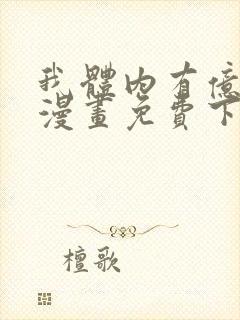 我體內有億
漫畫免費下
檀歌